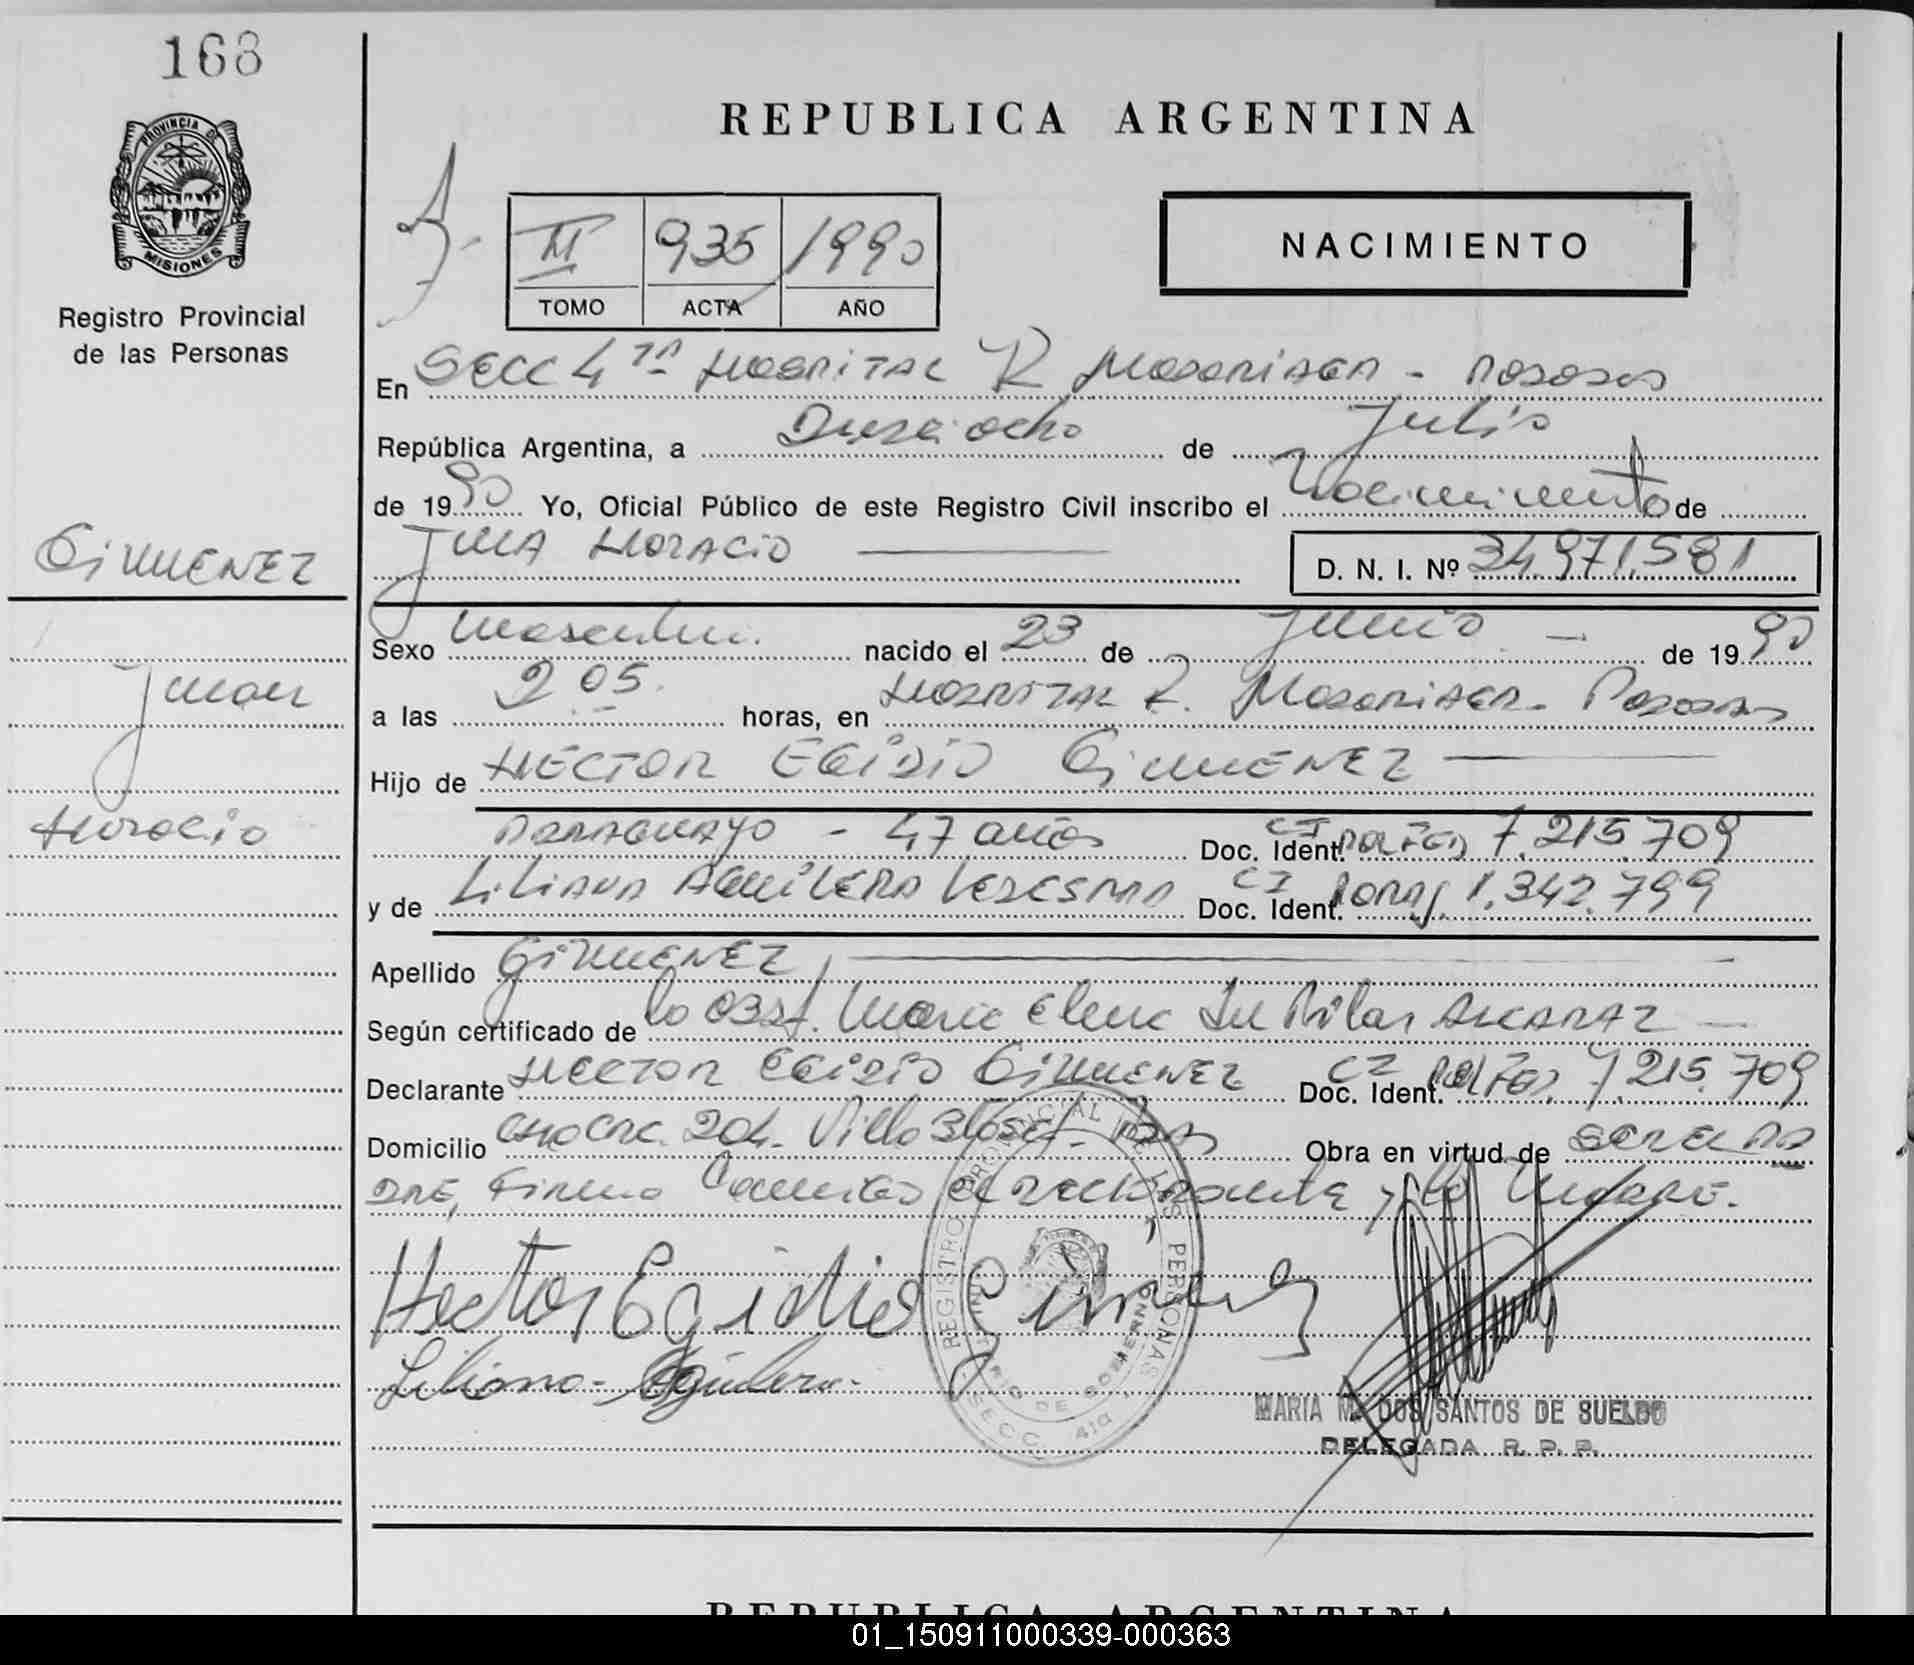 168
REPUBLICA ARGENTINA
PROVINCIA DE
MISIONES
Registro Provincial
de las Personas
III 935 1990
TOMO ACTA AÑO
NACIMIENTO
En SECC 4ta HOSPITAL R MADARIAGA - POSADAS
República Argentina, a Dieciocho de Julio
de 1990 Yo, Oficial Público de este Registro Civil inscribo el Nacimiento de
JUAN HORACIO
D. N. I. Nº 34.971.581
GIMENEZ
Juan
Horacio
Sexo Masculino. nacido el 23 de Junio de 1990
a las 2 05. horas, en HOSPITAL R. MADARIAGA - Posadas
Hijo de HECTOR EGIDIO GIMENEZ
PARAGUAYO - 47 años Doc. Ident. CI POL FED 7.215.709
y de LILIANA AGUILERA LEDESMA Doc. Ident. CI PARAG. 1.342.799
Apellido GIMENEZ
Según certificado de la Obst. Maria Elena del Pilar ALCARAZ
Declarante HECTOR EGIDIO GIMENEZ Doc. Ident. CI POL FED. 7.215.709
Domicilio 204. Villa Obra en virtud de SER EL PA
DRE, Firma el declarante y la Madre.
Hector Egidio Gimenez
Liliana Aguilera
REGISTRO PROVINCIAL DE LAS PERSONAS
MINISTERIO DE GOBIERNO
SECC. 4ta
MARIA M. DOS SANTOS DE SUELDO
DELEGADA R. P. P.
REPUBLICA ARGENTINA
01_150911000339-000363